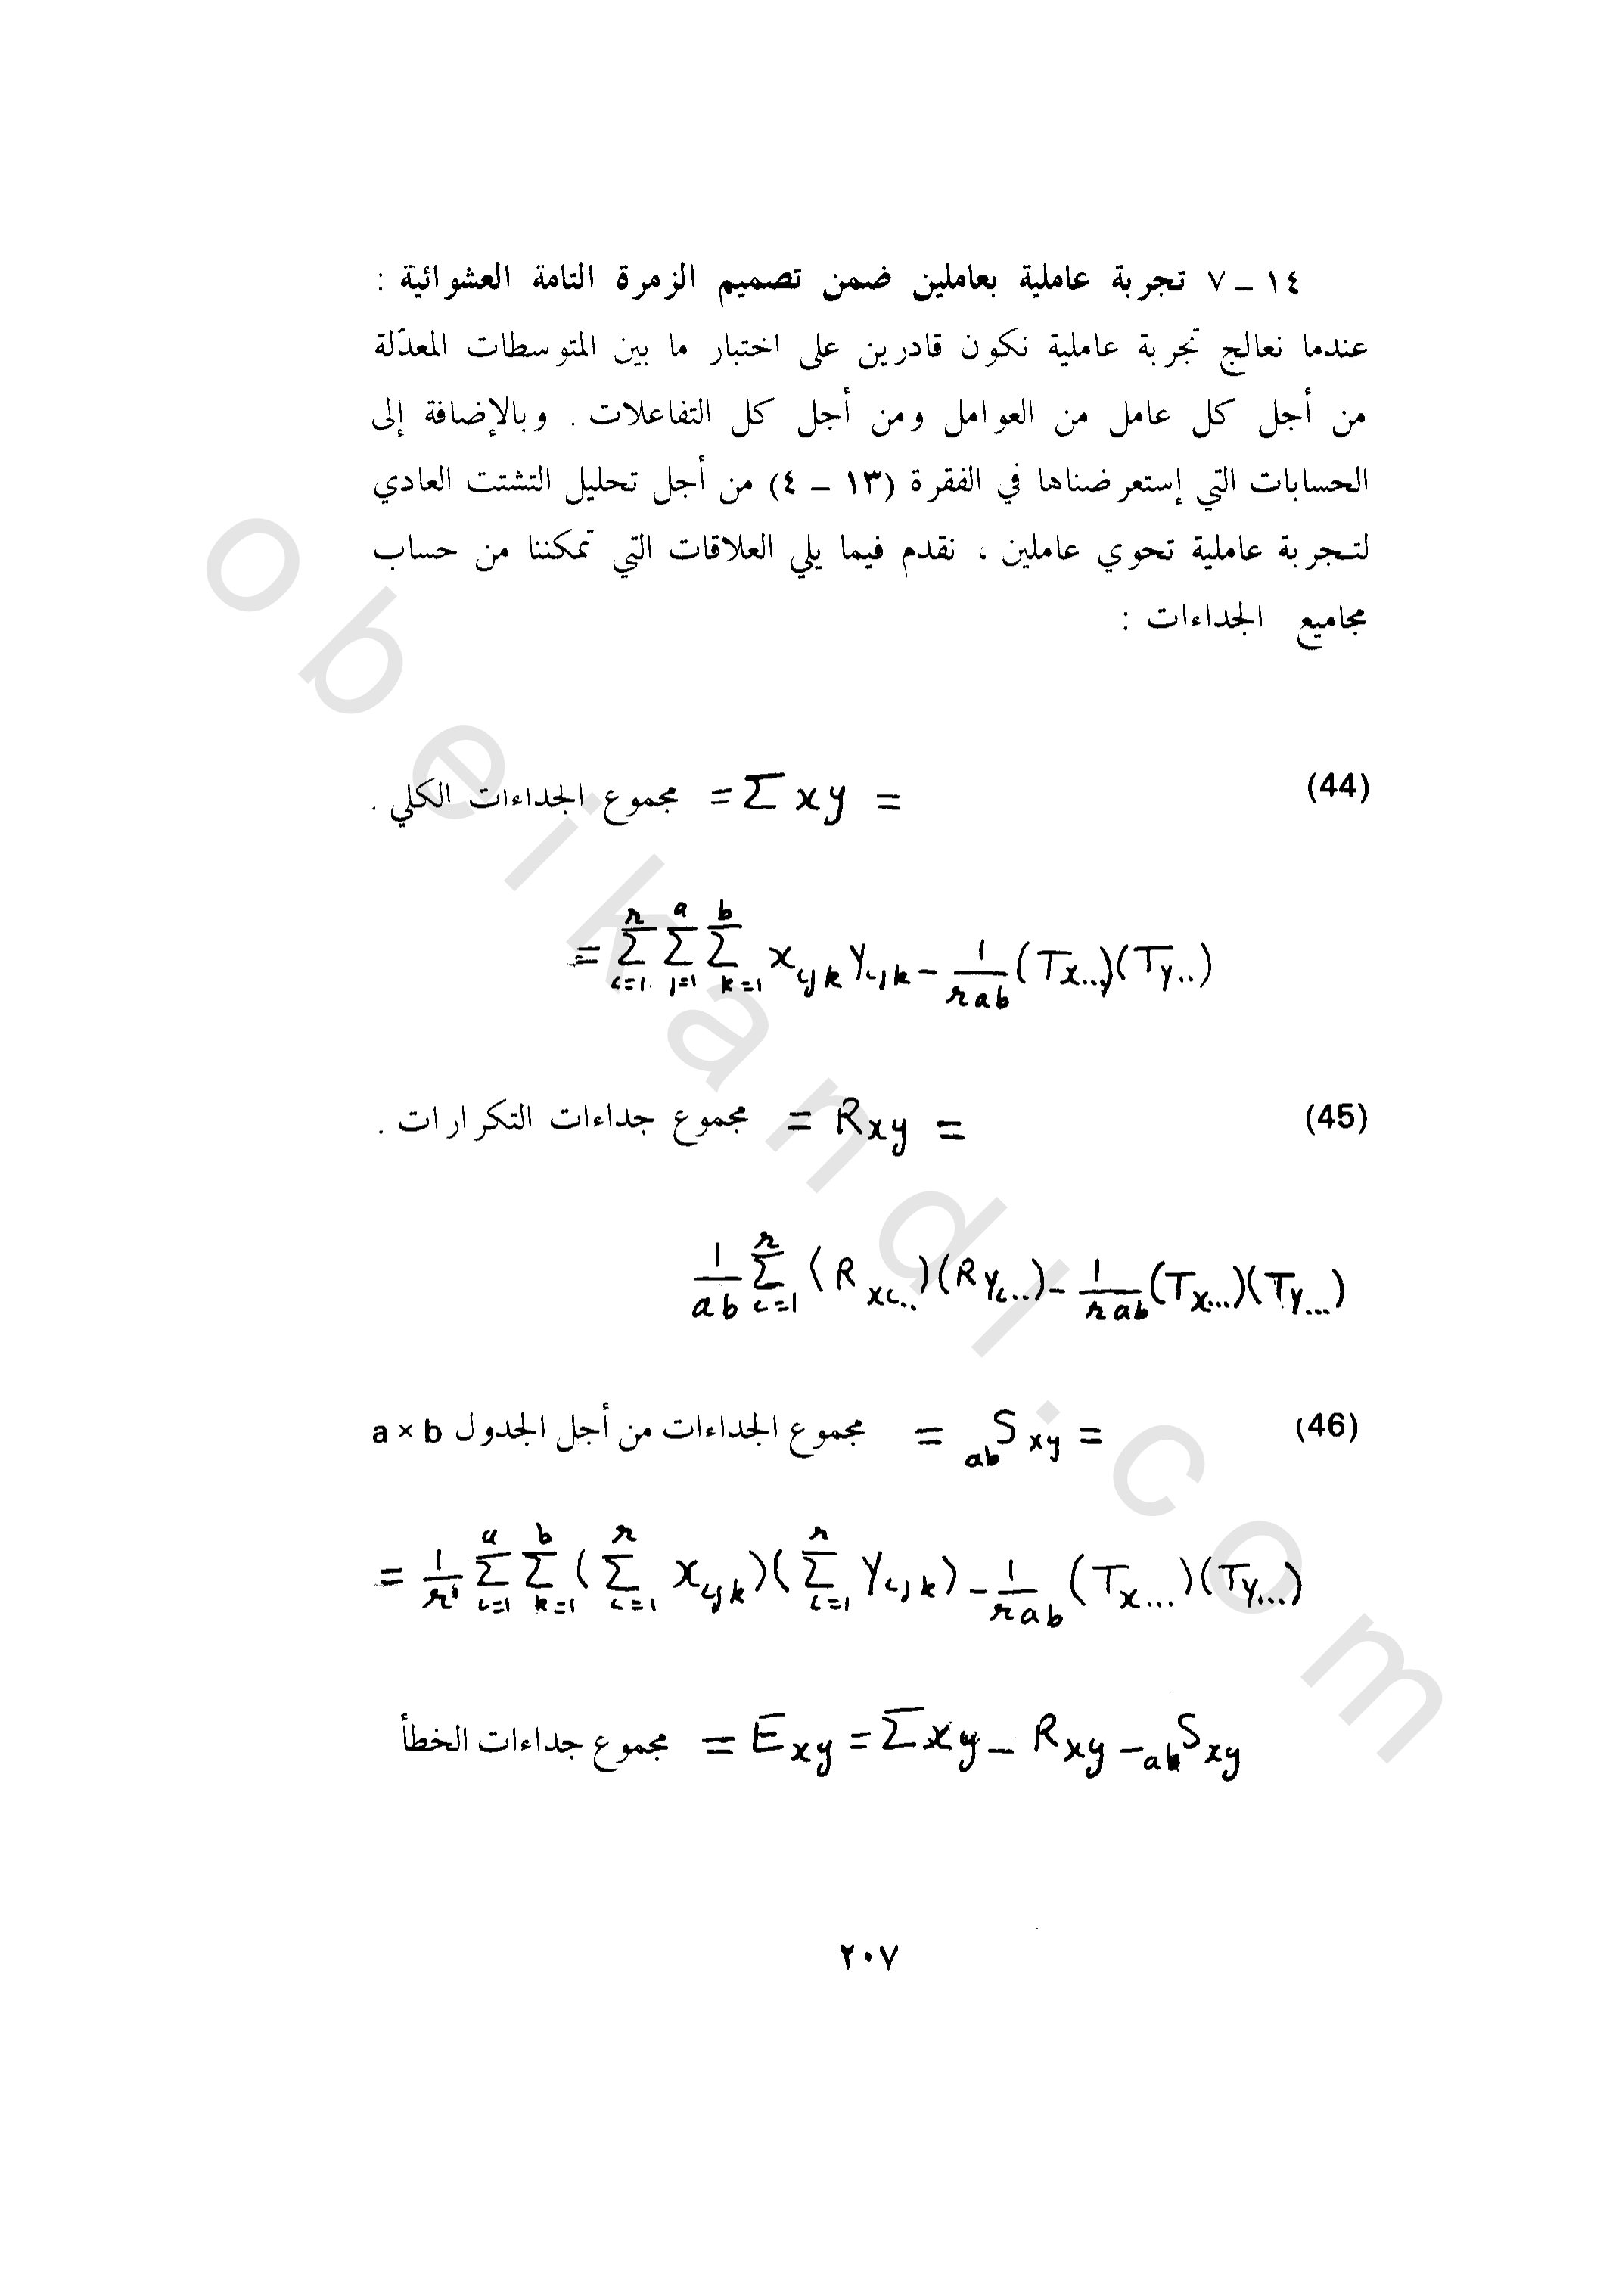 ١٤ – ٧ تجربة عاملية بعاملين ضمن تصميم الزمرة التامة العشوائية :
عندما نعالج تجربة عاملية نكون قادرين على اختبار ما بين المتوسطات المعدّلة
من أجل كل عامل من العوامل ومن أجل كل التفاعلات . وبالإضافة إلى
الحسابات التي إستعرضناها في الفقرة (١٣ – ٤) من أجل تحليل التشتت العادي
لتجربة عاملية تحوي عاملين ، نقدم فيما يلي العلاقات التي تمكننا من حساب
مجاميع الجداءات :
(44) = Σxy = مجموع الجداءات الكلي .
= Σ_{i=1}^{r} Σ_{j=1}^{a} Σ_{k=1}^{b} x_{ijk} y_{ijk} – 1/rab (T_{x...})(T_{y..})
(45) = R_{xy} = مجموع جداءات التكرارات .
1/ab Σ_{i=1}^{r} (R_{xi..})(R_{yi..}) – 1/rab (T_{x...})(T_{y...})
(46) = _{ab}S_{xy} = مجموع الجداءات من أجل الجدول a × b
= 1/r Σ_{i=1}^{a} Σ_{k=1}^{b} (Σ_{i=1}^{r} x_{ijk})(Σ_{i=1}^{r} y_{ijk}) – 1/rab (T_{x...})(T_{y...})
مجموع جداءات الخطأ = E_{xy} = Σxy – R_{xy} – _{ab}S_{xy}
٢٠٧
obeikandi.com